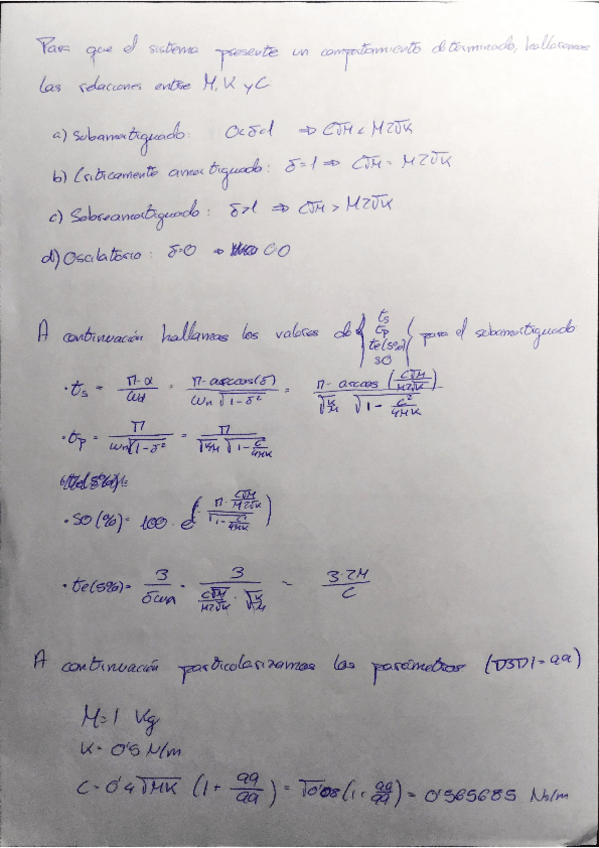 Para que el sistema presente un comportamiento determinado, hallaremos
las relaciones entre M, K y C
a) Subamortiguado: 0<δ<1 ⇒ C√M < M2√K
b) Criticamente amortiguado: δ=1 ⇒ C√M = M2√K
c) Sobreamortiguado: δ>1 ⇒ C√M > M2√K
d) Oscilatorio: δ=0 ⇒ C=0
A continuación hallamos los valores de { ts tp te(5%) SO } para el subamortiguado
· ts = (π-α)/ωd = (π-arccos(δ))/(ωn√(1-δ²)) = (π-arccos(C√M/(M2√K)))/(√(K/M) √(1-C²/(4MK)))
· tp = π/(ωn√(1-δ²)) = π/(√(K/M) √(1-C/(4MK)))
· SO(%) = 100 · e^(-(π·C√M/(M2√K))/√(1-C/(4MK)))
· te(5%) = 3/(δωn) = 3/(C√M/(M2√K) · √(K/M)) = 3·2M/C
A continuación particularizamos los parámetros (D3D1=99)
M=1 Kg
K=0'5 N/m
C=0'4√MK (1+99/99) = √0'08 (1+99/99) = 0'565685 Ns/m